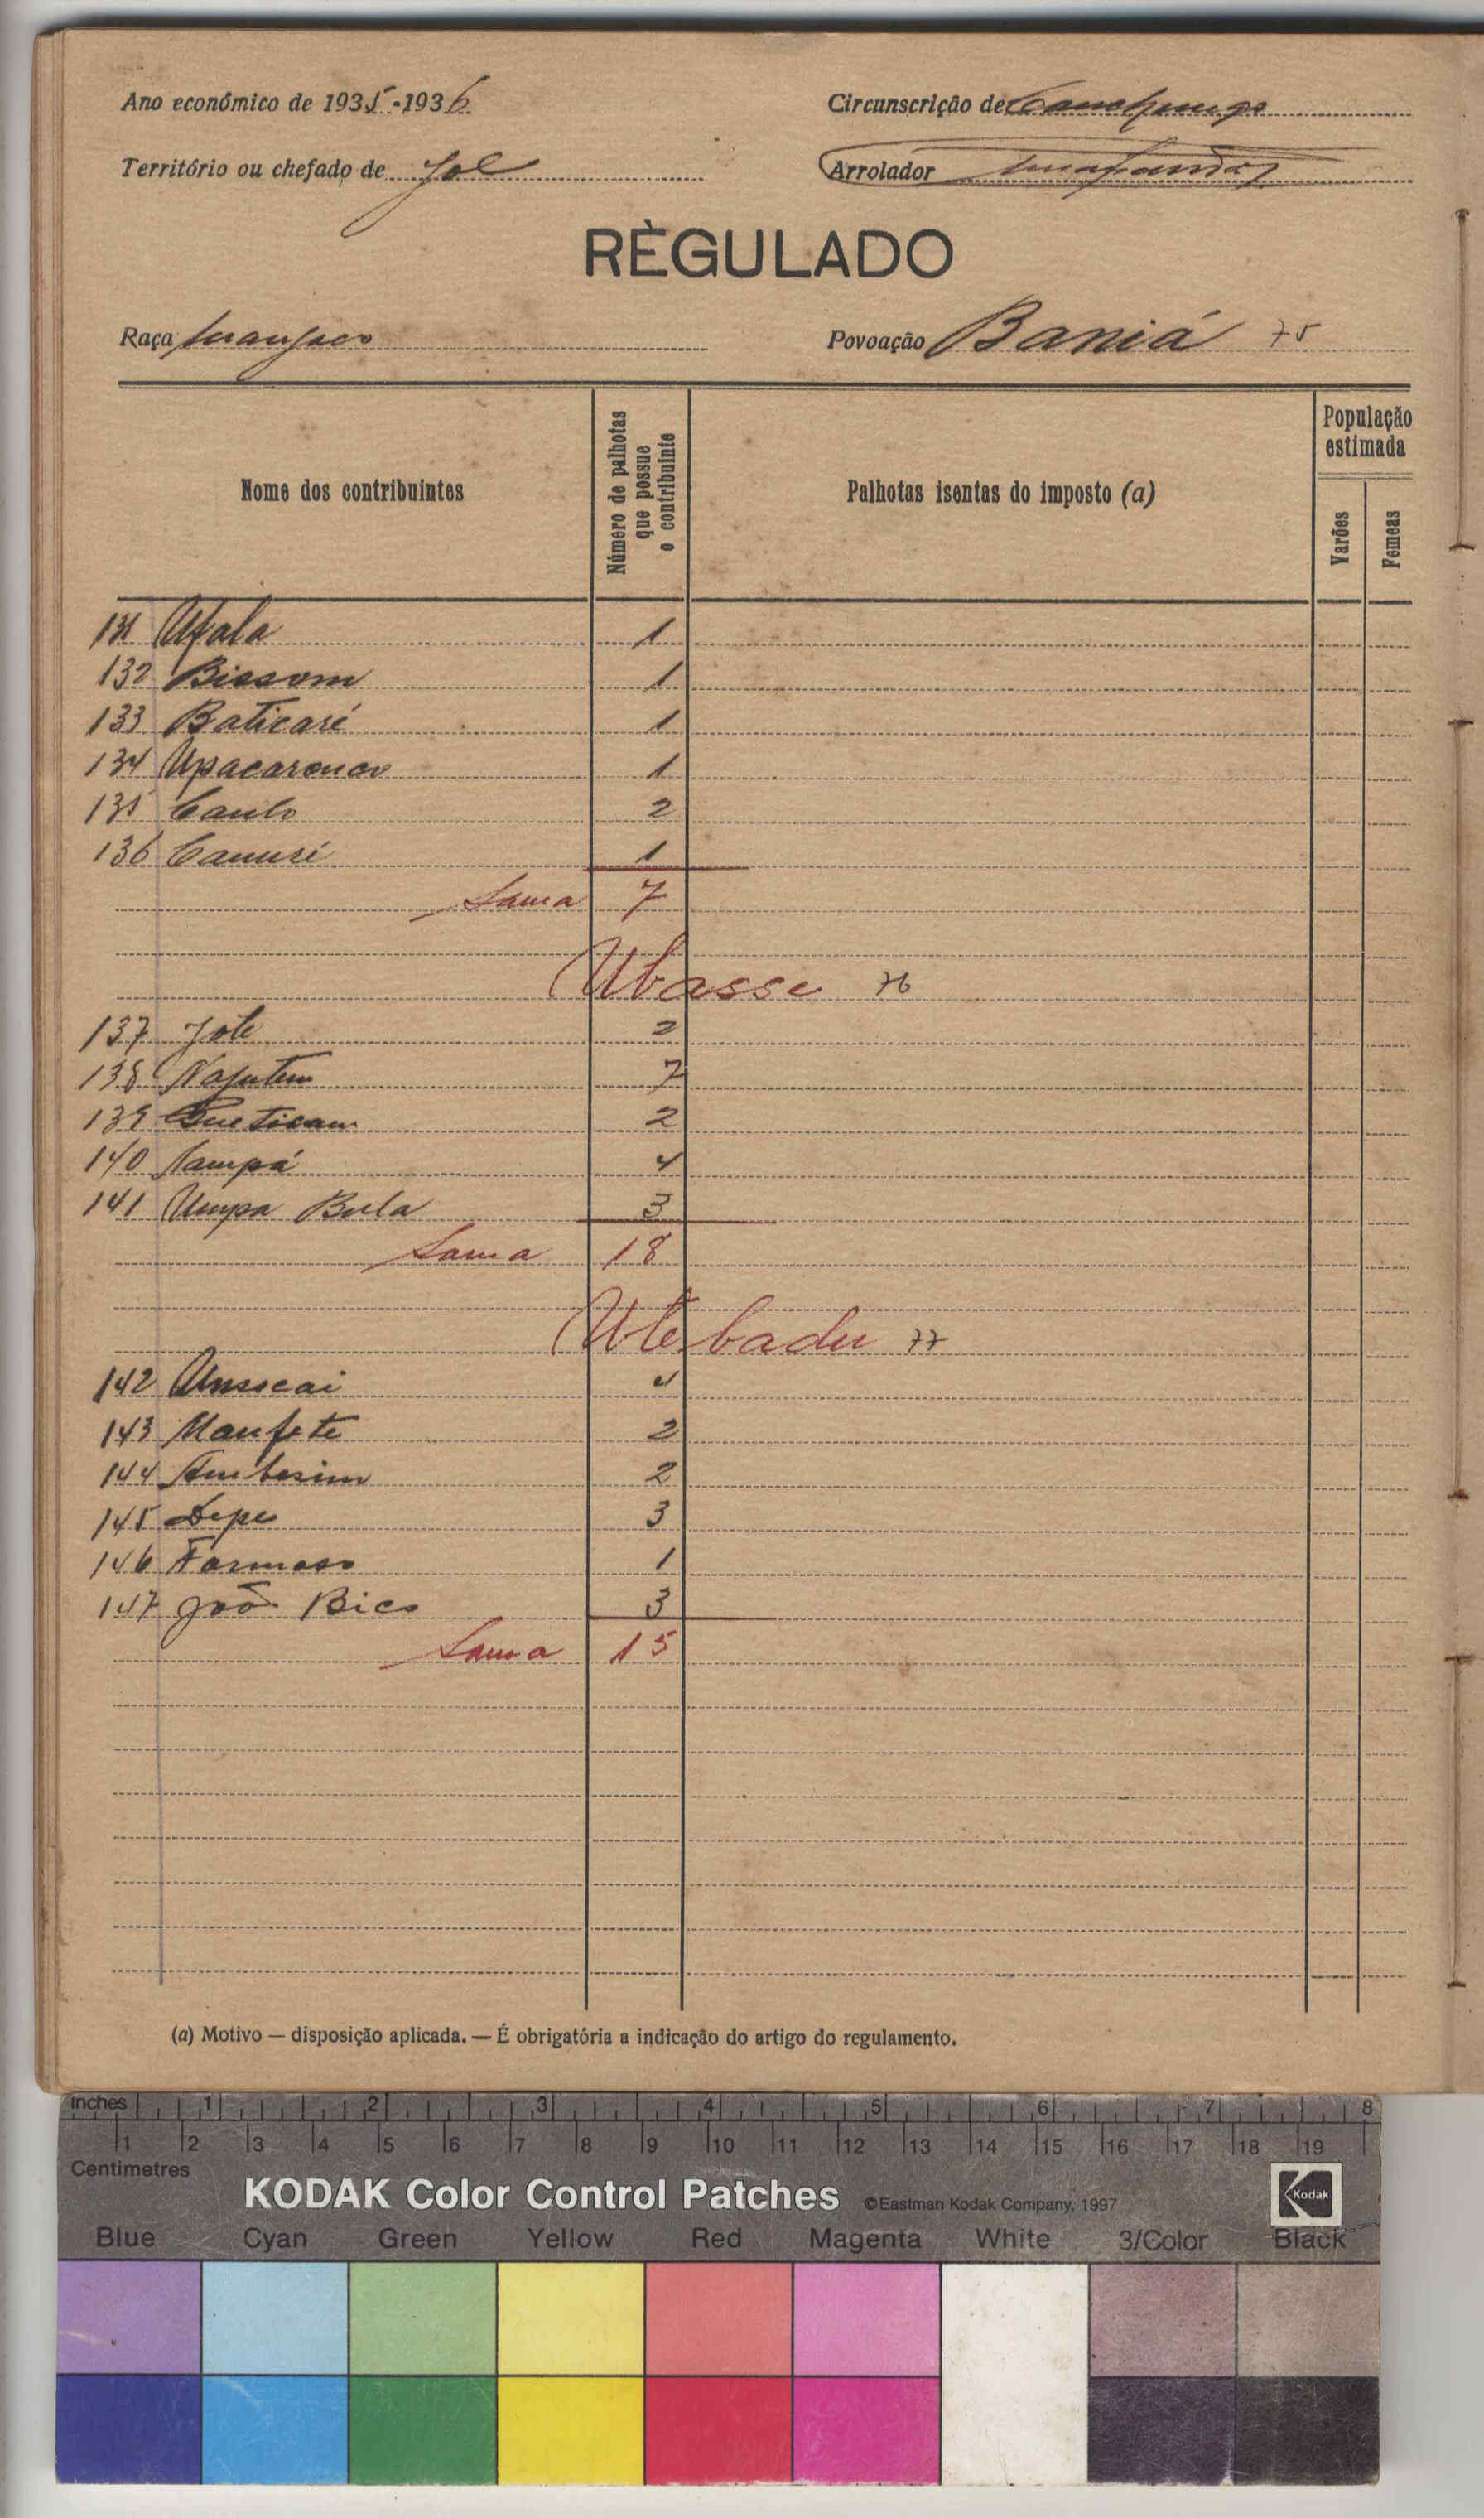 Ano económico de 1935-1936
Circunscrição de Canchungo
Território ou chefado de Jol
Arrolador
RÈGULADO
Raça Manjaco
Povoação Baniá 75
Nome dos contribuintes
Número de palhotas que possue o contribuinte
Palhotas isentas do imposto (a)
População estimada
Varões
Femeas
131 Ufala 1
132 Bissom 1
133 Baticaré 1
134 Upacaronco 1
135 Caulo 2
136 Canuré 1
Soma 7
Ubasse 76
137 Jole 2
138 Najutum 7
139 2
140 Nampá 4
141 Umpa Bula 3
Soma 18
Utebadu 77
142 Unssecai 4
143 Manfete 2
144 Ambesim 2
145 Depe 3
146 Formoso 1
147 Joõ Bico 3
Soma 15
(a) Motivo — disposição aplicada. — É obrigatória a indicação do artigo do regulamento.
inches 1 2 3 4 5 6 7 8
1 2 3 4 5 6 7 8 9 10 11 12 13 14 15 16 17 18 19
Centimetres
KODAK Color Control Patches ©Eastman Kodak Company, 1997 Kodak
Blue Cyan Green Yellow Red Magenta White 3/Color Black